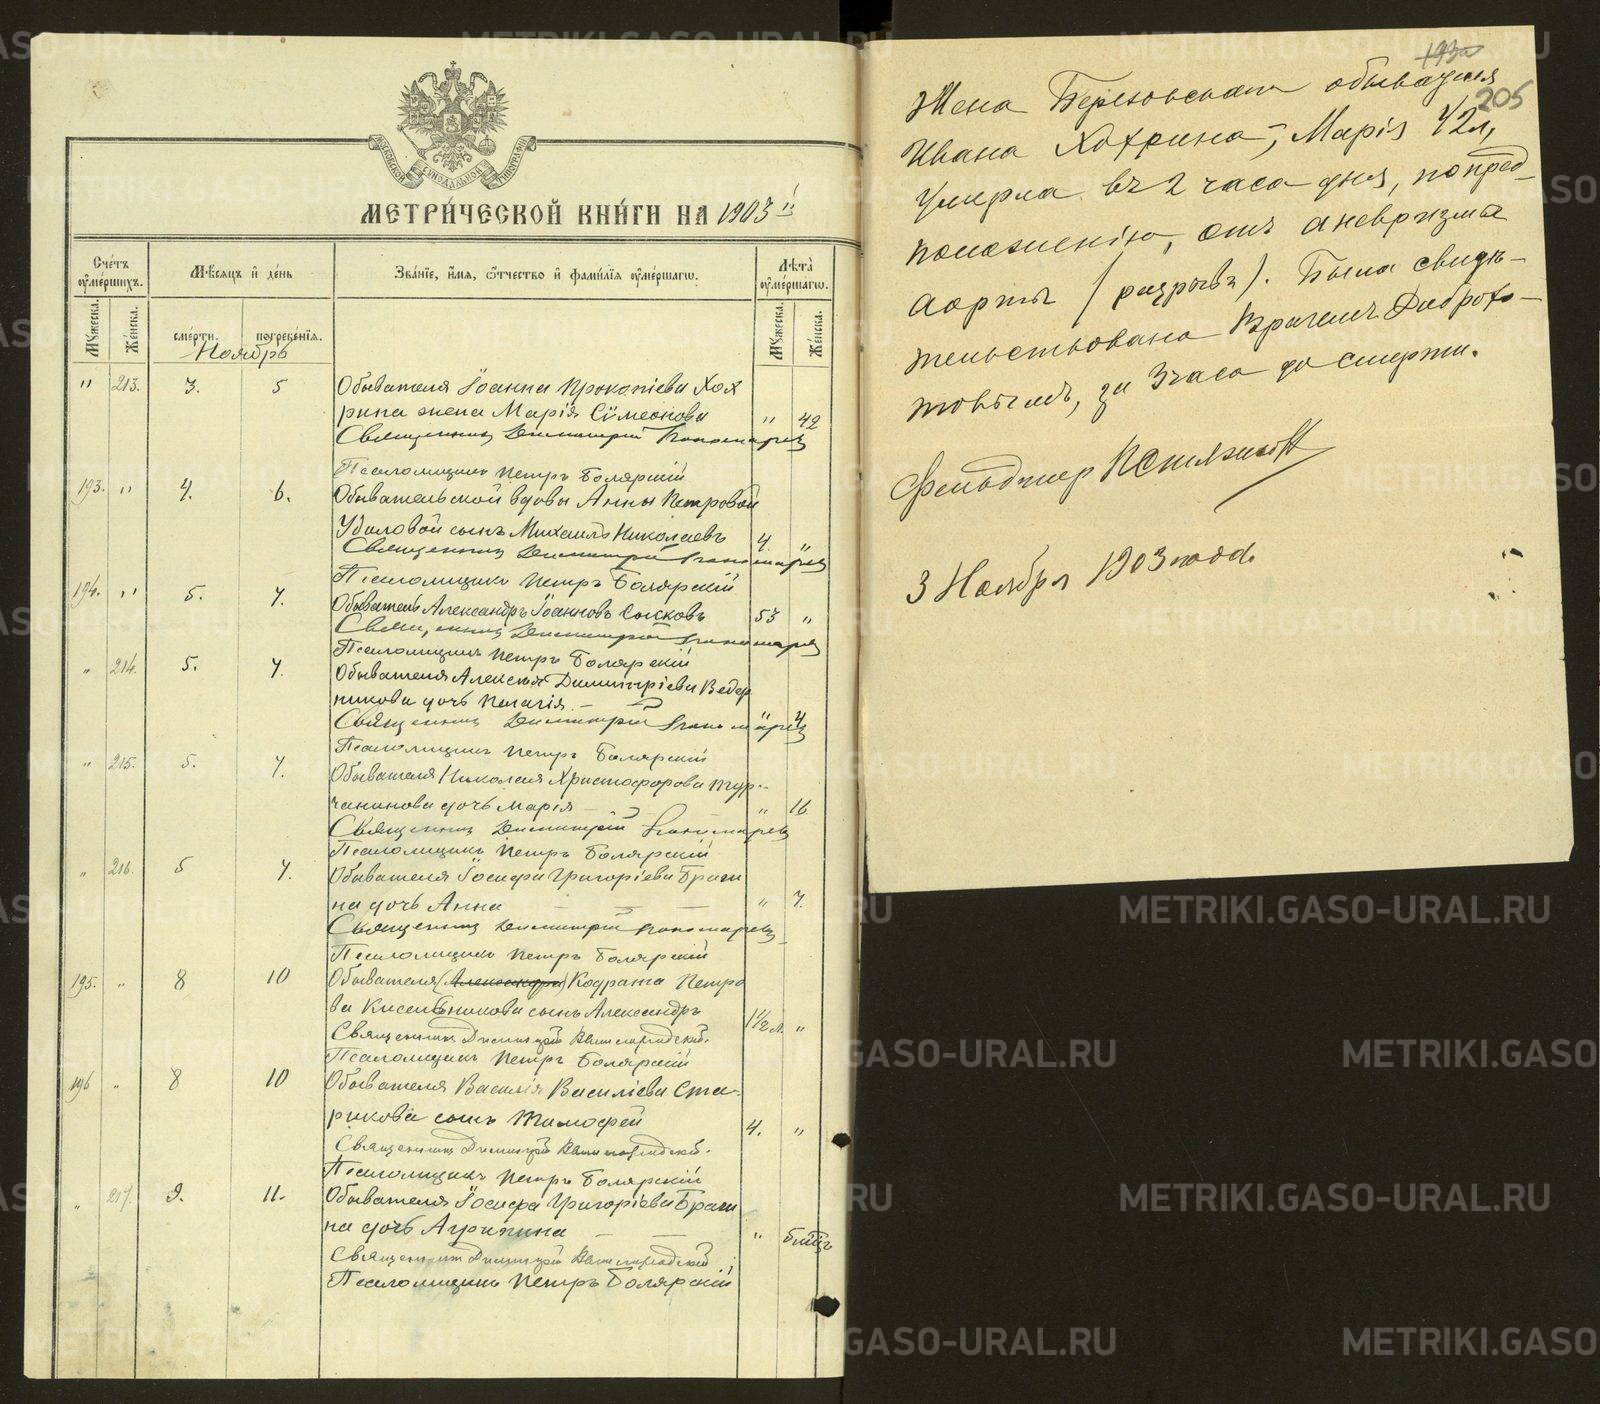 МЕТРИ́ЧЕСКОЙ КНИ́ГИ НА 1903 й
Сче́тъ ᲂу҆ме́ршихъ.
Мꙋ́жеска.
Же́нска.
Мѣ́сяцъ и҆ де́нь
сме́рти.
погребе́нїя.
Зва́нїе, и҆́мя, ѻ҆́тчество и҆ фами́лїя ᲂу҆ме́ршагѡ.
Лѣ́та ᲂу҆ме́ршагѡ.
Мꙋ́жеска.
Же́нска.
Ноябрь
" 213. 3. 5 Обывателя Іоанна Прокопіева Хох
рина жена Марія Сѵмеонова " 42
Священникъ Димитрій Пономаревъ
Псаломщикъ Петръ Болярскій
193. " 4. 6. Обывательской вдовы Анны Петровой
Удиловой сынъ Михаилъ Николаевъ 4. "
Священникъ Димитрій Пономаревъ
Псаломщикъ Петръ Болярскій
194. " 5. 7. Обыватель Александръ Іоанновъ Сысковъ 53 "
Священникъ Димитрій Пономаревъ
Псаломщикъ Петръ Болярскій
" 214. 5. 7. Обывателя Алексѣя Димитріева Ведер
никова дочь Пелагія " 4
Священникъ Димитрій Пономаревъ
Псаломщикъ Петръ Болярскій
" 215. 5. 7. Обывателя Николая Христофорова Тур-
чанинова дочь Марія " 16
Священникъ Димитрій Пономаревъ
Псаломщикъ Петръ Болярскій
" 216. 5 7. Обывателя Іосифа Григоріева Браги
на дочь Анна " 7.
Священникъ Димитрій Пономаревъ
Псаломщикъ Петръ Болярскій
195. " 8 10 Обывателя (Александра) Кодрата Петро
ва Кисельникова сынъ Александръ 1 1/2 л. "
Священникъ Димитрій
Псаломщикъ Петръ Болярскій
196 " 8 10 Обывателя Василія Василіева Ста-
рикова сынъ Тимофей 4. "
Священникъ Димитрій
Псаломщикъ Петръ Болярскій
" 217. 9. 11. Обывателя Іосифа Григоріева Браги
на дочь Агрипина "
Священникъ Димитрій
Псаломщикъ Петръ Болярскій
205
Жена Березовскаго обывателя
Ивана Хохрина, Марія 42 л,
умерла въ 2 часа дня, по пред-
положенію, отъ аневризмы
аорты (разрывъ). Была свидѣ-
тельствована Врачемъ Доброхо-
товымъ, за 3 часа до смерти.
Фельдшер
3 Ноября 1903 года.
METRIKI.GASO-URAL.RU